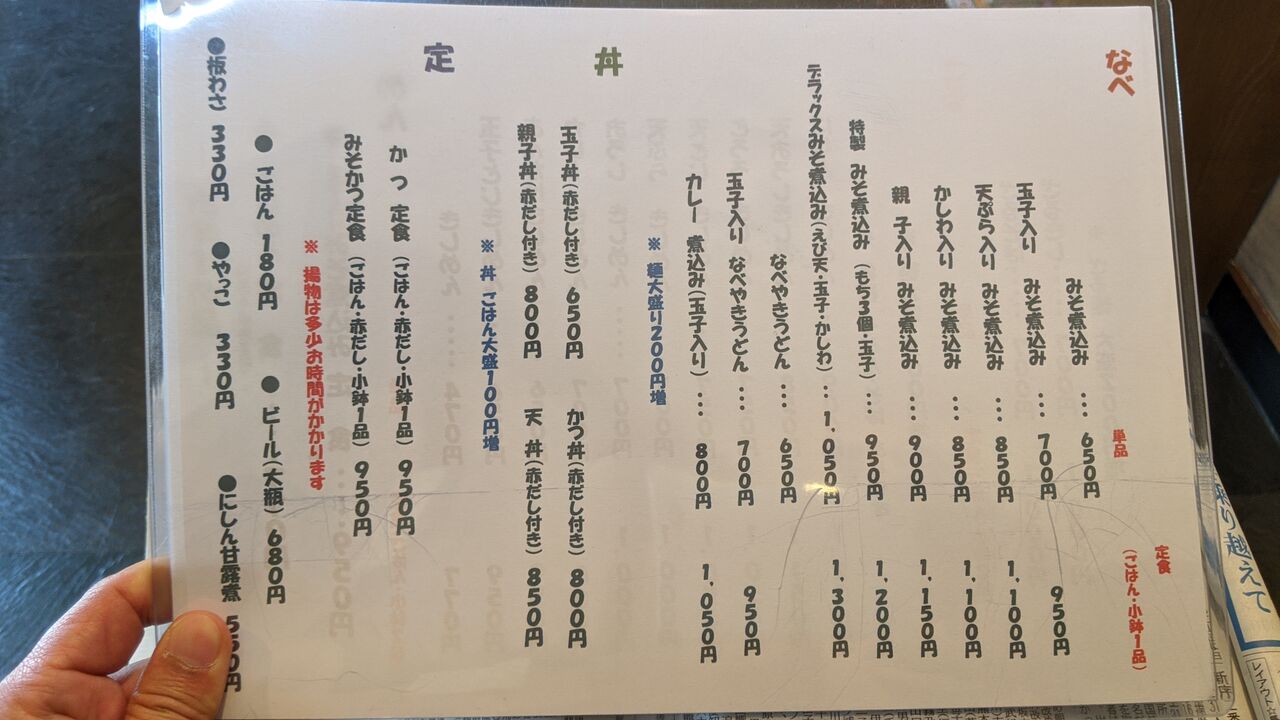 なべ
単品
定食
(ごはん・小鉢1品)
みそ煮込み ・・・ 650円
玉子入り みそ煮込み ・・・ 700円 950円
天ぷら入り みそ煮込み ・・・ 850円 1,100円
かしわ入り みそ煮込み ・・・ 850円 1,100円
親子入り みそ煮込み ・・・ 900円 1,150円
特製 みそ煮込み(もち3個・玉子)・・・ 950円 1,200円
デラックスみそ煮込み(えび天・玉子・かしわ)・・・ 1,050円 1,300円
なべやきうどん ・・・ 650円
玉子入り なべやきうどん ・・・ 700円 950円
カレー 煮込み(玉子入り)・・・ 800円 1,050円
※ 麺大盛り200円増
丼
玉子丼(赤だし付き) 650円 かつ丼(赤だし付き) 800円
親子丼(赤だし付き) 800円 天 丼(赤だし付き) 850円
※ 丼 ごはん大盛100円増
定
かつ 定食 (ごはん・赤だし・小鉢1品) 950円
みそかつ定食 (ごはん・赤だし・小鉢1品) 950円
※ 揚物は多少お時間がかかります
● ごはん 180円 ● ビール(大瓶) 680円
●板わさ 330円 ●やっこ 330円 ●にしん甘露煮 550円
り越えて